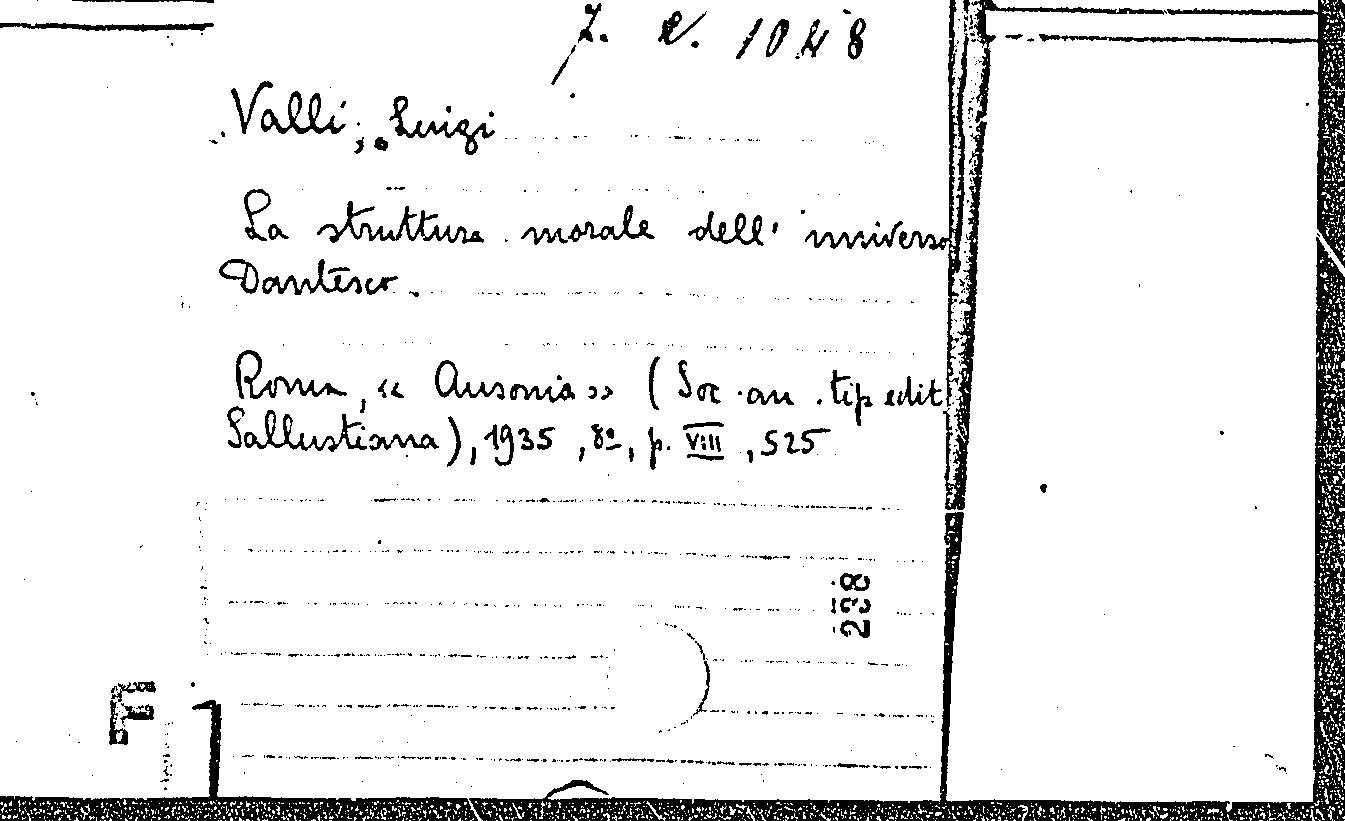 7. e. 1048
Valli, Luigi
La struttura morale dell' universo
Dantesco.
Roma, « Ausonia » (Soc. an. tip edit
Sallustiana), 1935, 8º, p. VIII, 525
238